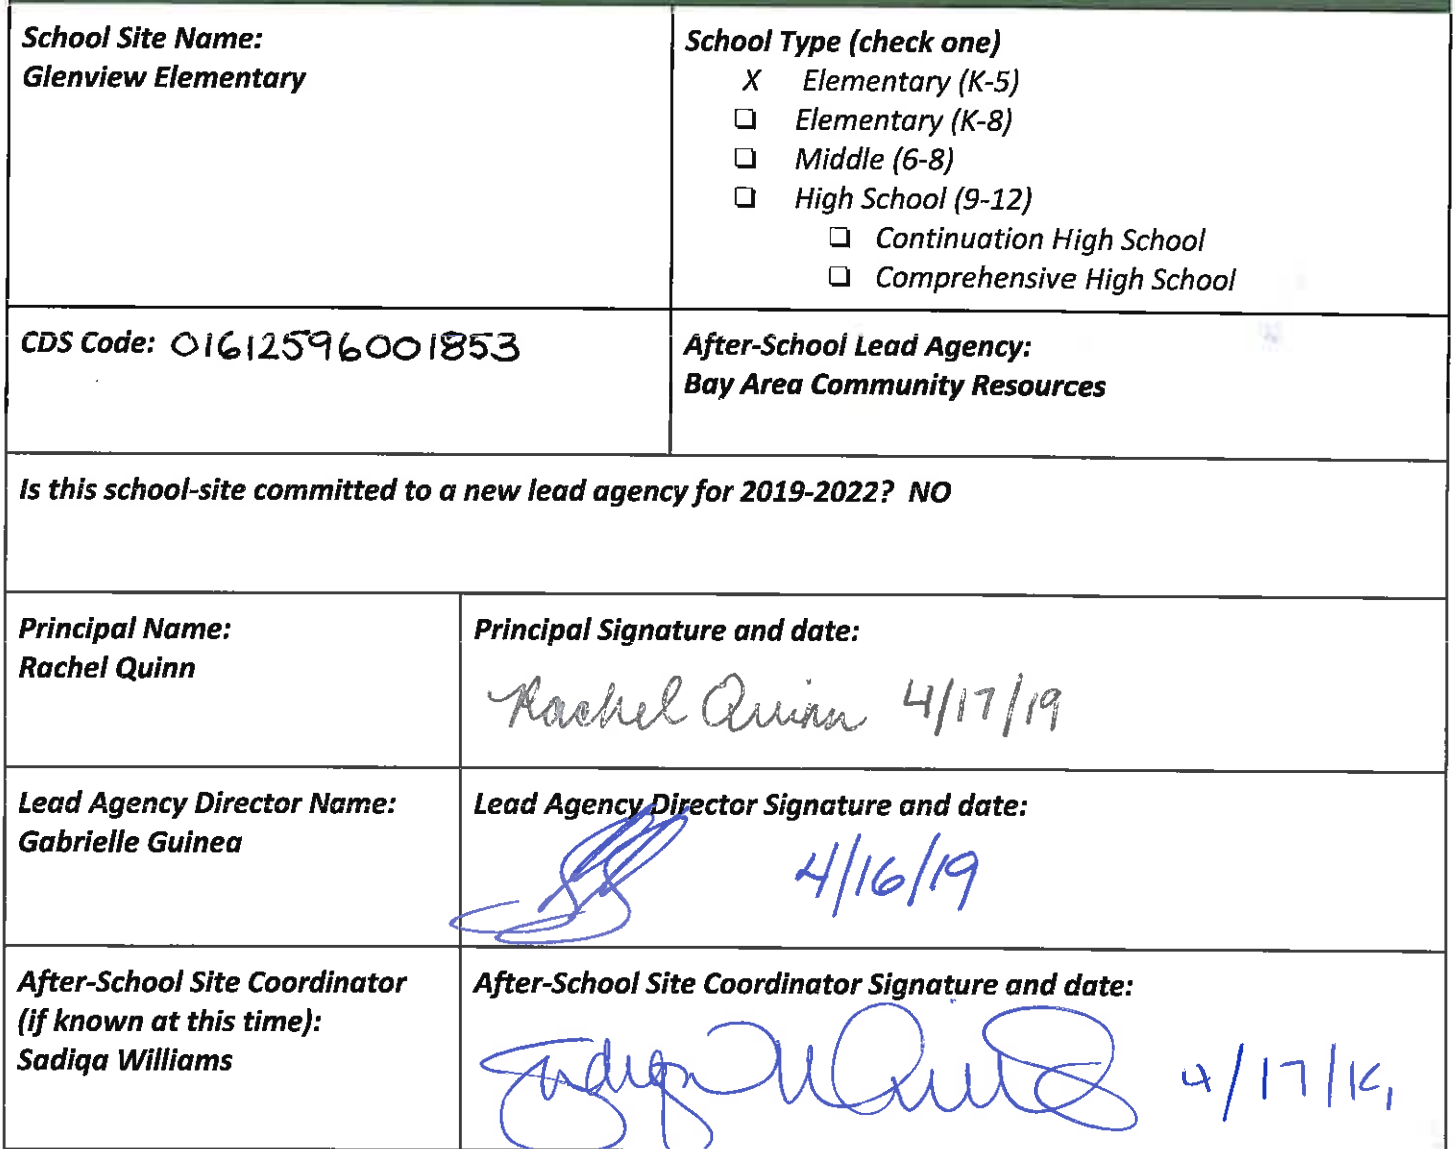 School Site Name:
Glenview Elementary
School Type (check one)
X Elementary (K-5)
❑ Elementary (K-8)
❑ Middle (6-8)
❑ High School (9-12)
❑ Continuation High School
❑ Comprehensive High School
CDS Code: 01612596001853
After-School Lead Agency:
Bay Area Community Resources
Is this school-site committed to a new lead agency for 2019-2022? NO
Principal Name:
Rachel Quinn
Principal Signature and date:
Rachel Quinn 4/17/19
Lead Agency Director Name:
Gabrielle Guinea
Lead Agency Director Signature and date:
4/16/19
After-School Site Coordinator
(if known at this time):
Sadiqa Williams
After-School Site Coordinator Signature and date:
Sadiqa Williams 4/17/19